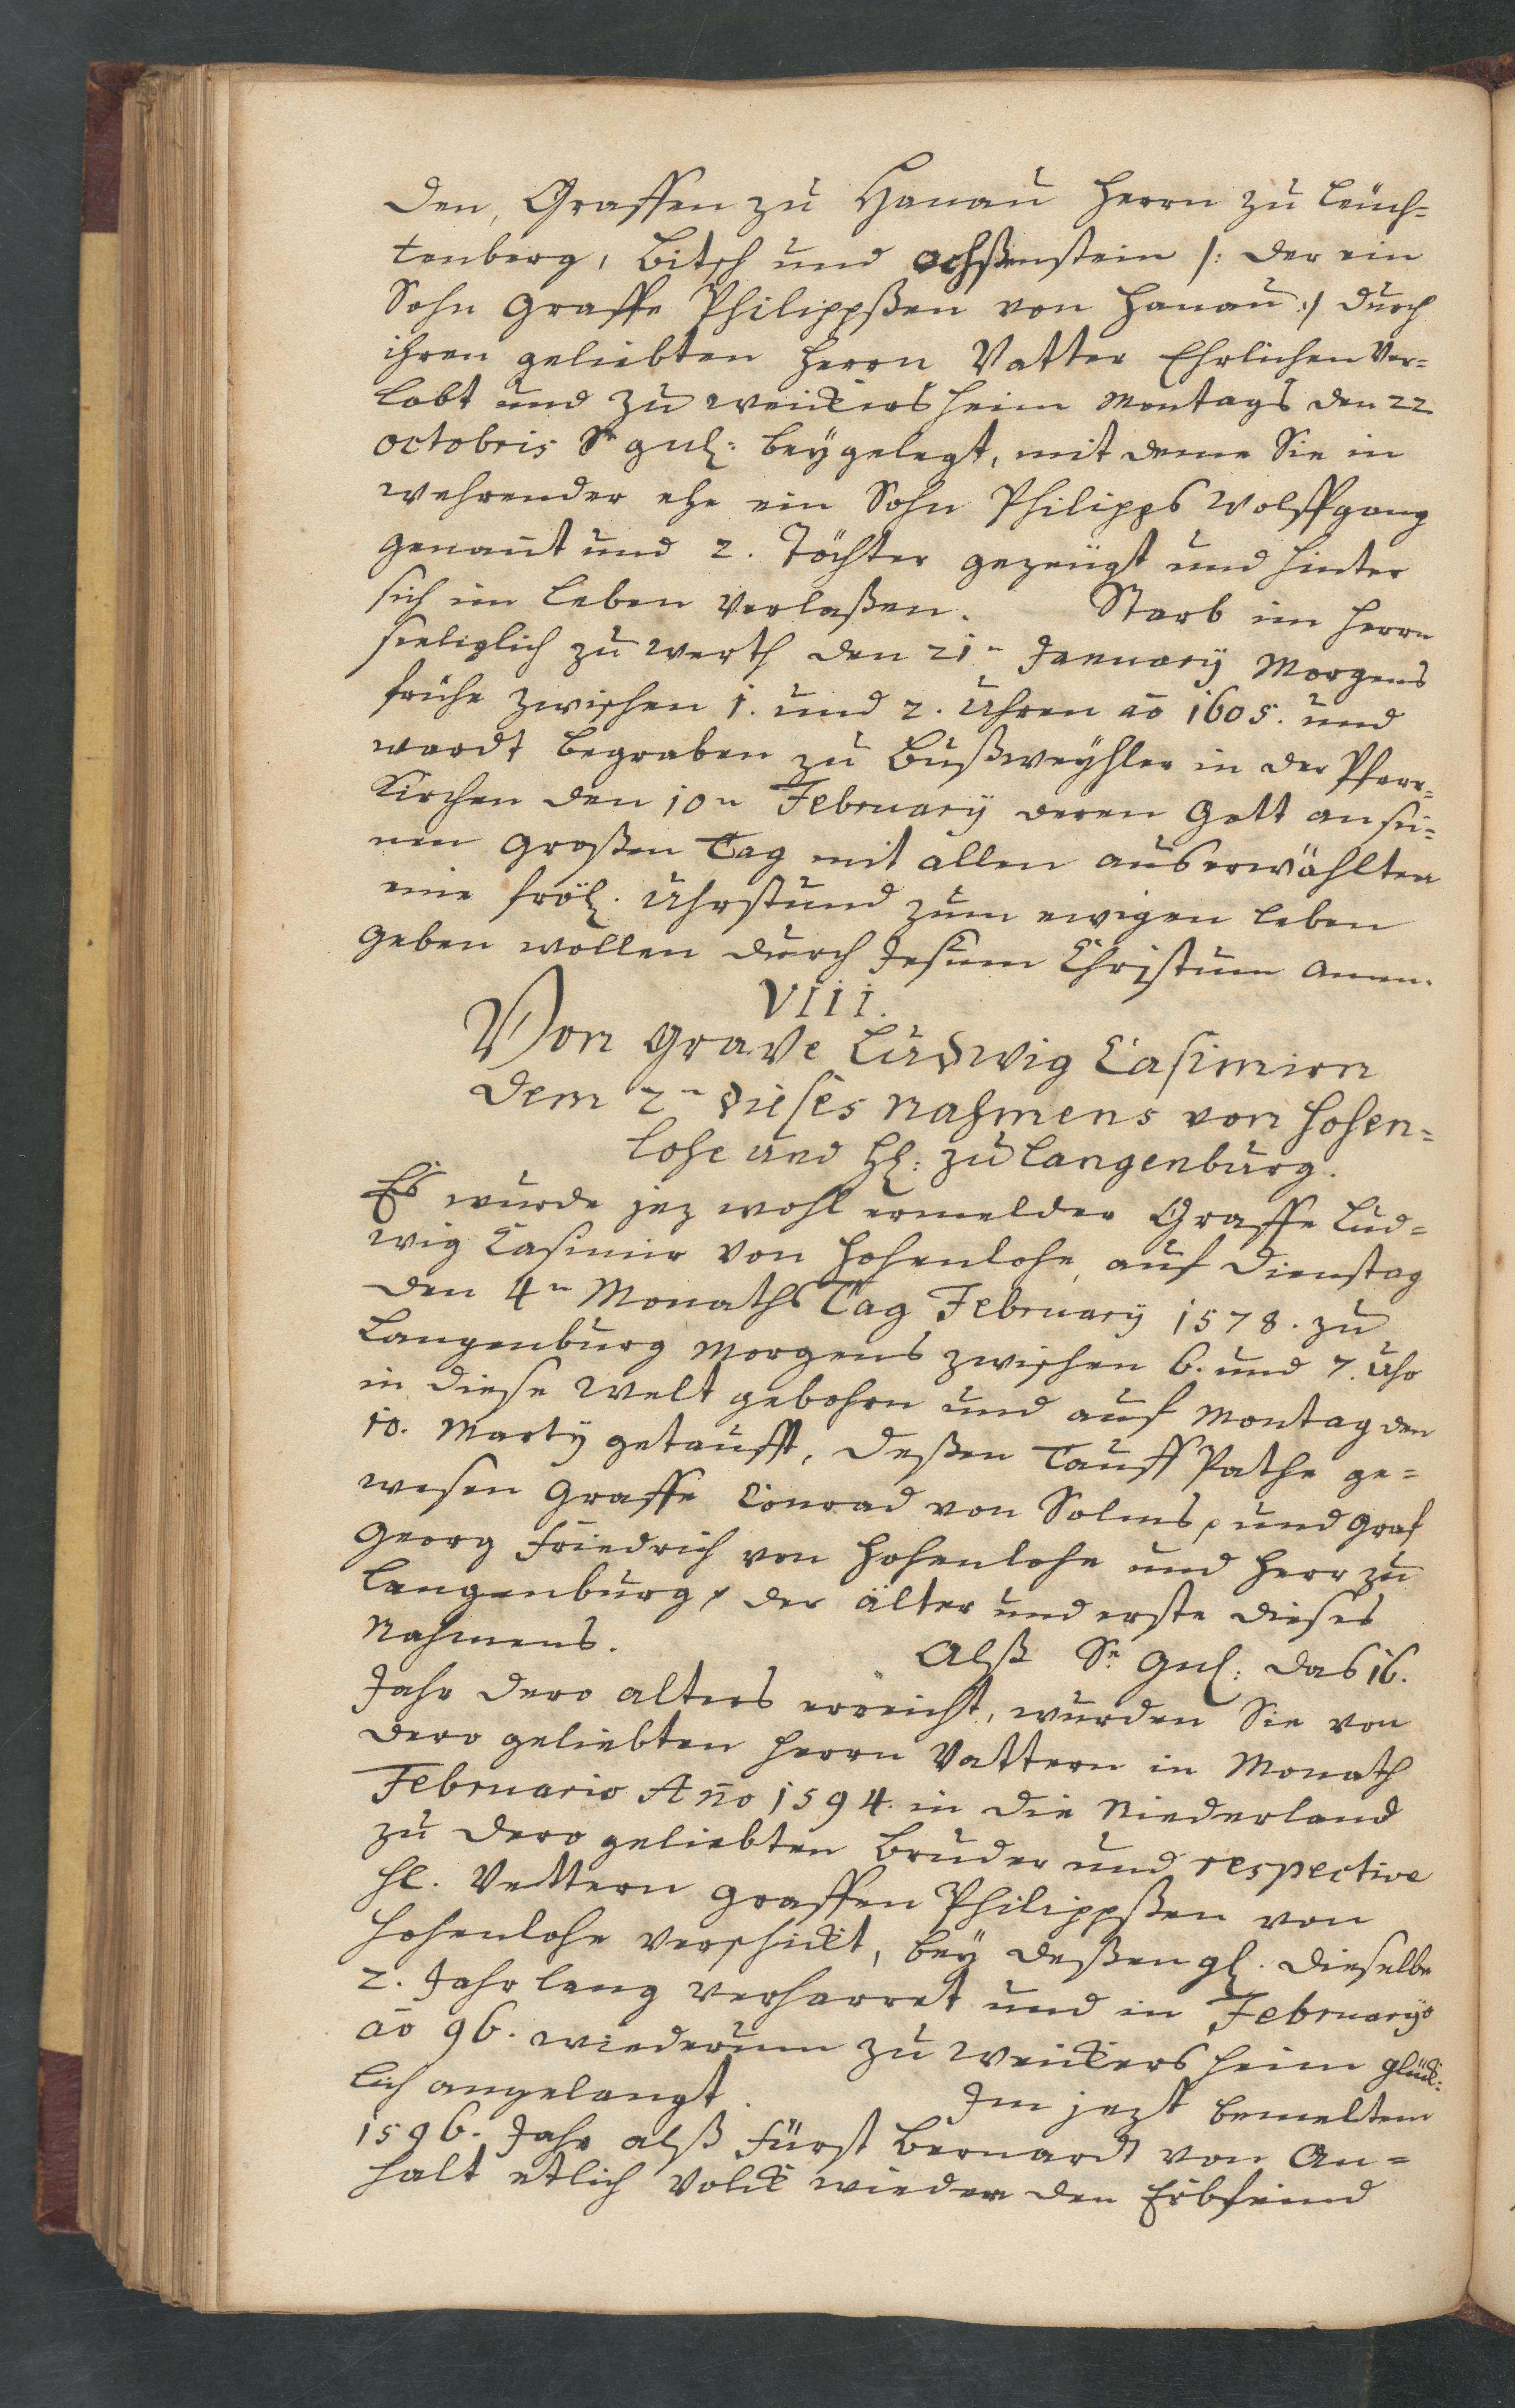 den, Graffen zu Hanau Herrn zu Leuch-
tenberg, Bitsch und Ochßenstein /: der ein
Sohn Graffe Philippßen von Hanau :/ durch
ihren geliebten Herrn Vatter Ehrlichen Ver-
lobt und zu Weickersheim Montags den 22
octobris Sr gnl: beygelegt, mit deme Sie in
wehrender ehe ein Sohn Philipps Wolffgang
genant und 2. Töchter gezeugt und hinter
sich im Leben Verlaßen. Starb im Herrn
seeliglich zu Werth den 21n January Morgens
frühe zwischen 1. und 2. Uhren ao 1605. und
wardt begraben zu Bußweyhler in der Pfarr-
Kirchen den 10n February deren Gott an sei-
nen großen Tag mit allen auserwählten
eine fröl. Uhrstund zum ewigen Leben
geben wollen durch Jesum Christum Amen.
VIII.
Von Grave Ludwig Casimirn
dem 2n dieses Nahmens von Hohen-
lohe und Hl: zu Langenburg.
Es wurde jez wohl ermelder Graffe Lud-
wig Casimir von Hohenlohe auf Dienstag
den 4n Monaths Tag February 1578. zu
Langenburg Morgens zwischen 6. und 7. Uhr
in diese Welt gebohrn und auf Montag den
10. Marty getaufft, deßen Tauff Pathe ge-
wesen Graffe Conrad von Solms, und Graf
Georg Friedrich von Hohenlohe und Herr zu
Langenburg, der älter und erste dieses
Nahmens. Alß Sr. Gnl: das 16.
Jahr dero alters erreicht, wurden Sie von
dero geliebten Herrn Vattern in Monath
Februario Ano 1594. in die Niederland
zu dero geliebten Bruder und respective
Hl. Vettern Graffen Philippßen von
Hohenlohe verschickt, bey deßen gl. dieselbe
2. Jahr lang verharret und in Februaryo
ao 96. wiederum zu Weickersheim glück-
lich angelangt. Im jezt bemeltem
1596. Jahr alß Fürst Bernardt von An-
halt etlich Volck wieder den Erbfeind